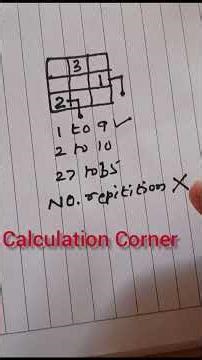 3
1
2
1 to 9
2 to 10
27 robs
NO. repitition X
Calculation Corner